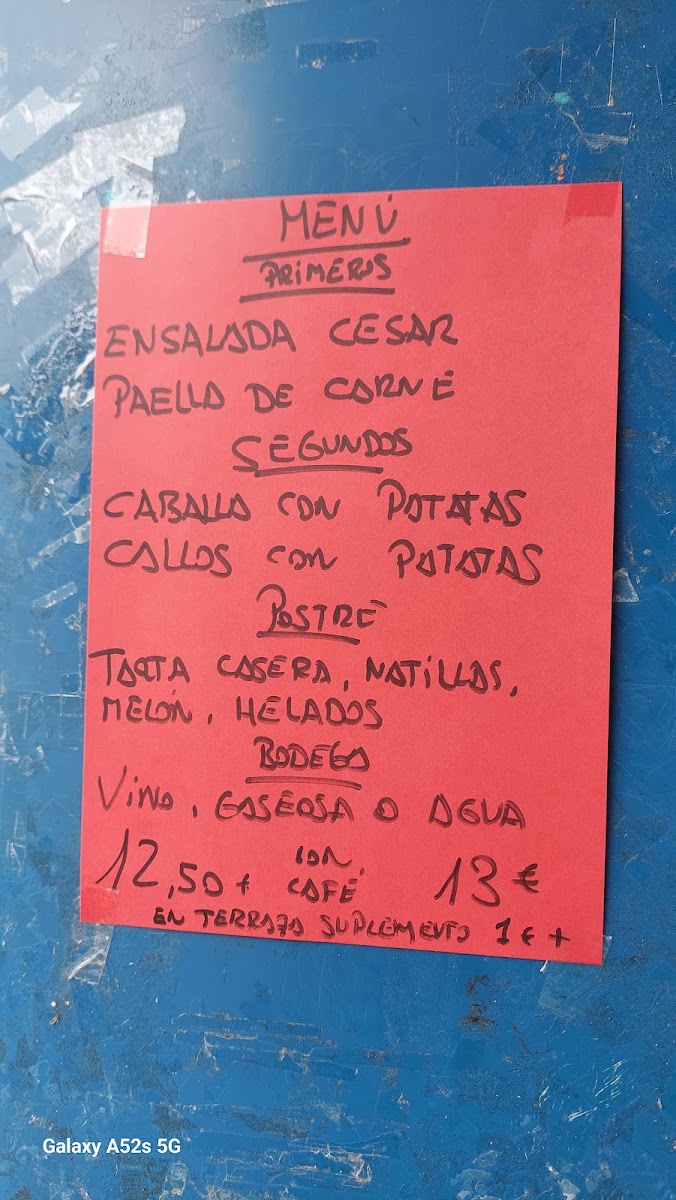 MENÚ
PRIMEROS
ENSALADA CESAR
PAELLA DE CARNE
SEGUNDOS
CABALLA CON PATATAS
CALLOS CON PATATAS
POSTRE
TARTA CASERA, NATILLAS,
MELÓN, HELADOS
BODEGA
VINO, GASEOSA O AGUA
12,50 € CON CAFÉ 13 €
EN TERRAZA SUPLEMENTO 1 € +
Galaxy A52s 5G